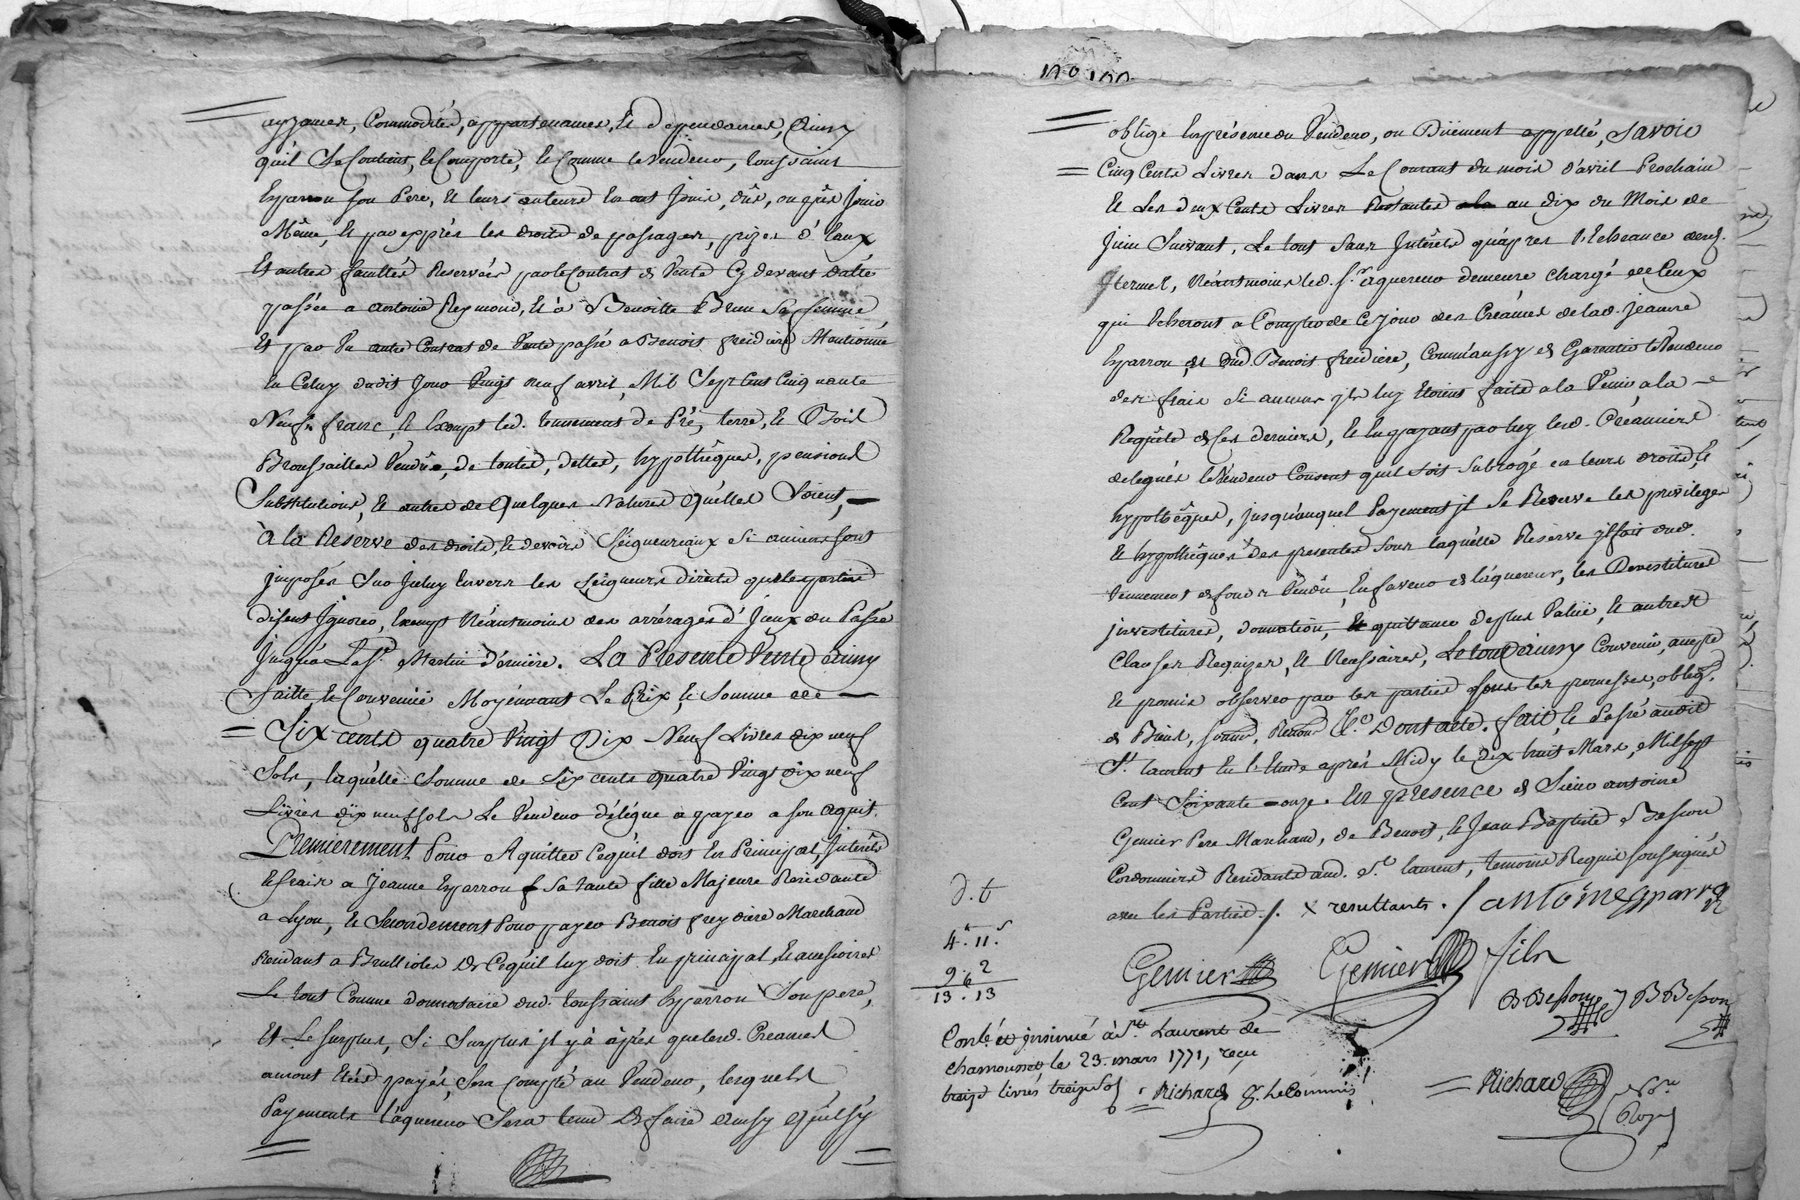 appances, Commodités, appartenances, et dépendances, Ainsy
quil Se Contient, Se Comporte, et Comme le Vendeur, toussaint
son Pere, et leurs auteurs en ont Joüis, dûs, ou pûs Joüir
Même, et par exprès les droits de passages, prizes d'Eaux
Et autres facultés Reservées par le Contrat de Vente Cy devant datté
passée a antoine Reymond, et à Benoitte Brun Sa femme,
Et par Un autre Contrat de Vente passé a Benoist freidiere Mentionné
En Celuy dudit Jour Vingt neuf avril, Mil Sept Cent Cinquante
Neuf, franc, et Exempt led. tennement de Pré, terre, et Bois
Broussailles Vendûs, de toutes, dettes, hypothêques, pensions
Substitutions, et autres de Quelques Natures Qu'elles Soient,
à la Reserve des droits, et devoirs Seigneuriaux Si aucuns sont
jmposés Sur Jceluy Envers les Seigneurs directs que les parties
disent Jgnorer, Exempt Néantmoins des arrérages d'Jceux du Passé
Jusqu'a La St. Martin dernière. La Presente Vente Ainsy
Faitte, et Convenüe Moyénnant Le Prix, et Somme de
Six cents quatre Vingt Dix Neuf Livres dix neuf
Sols, laquelle Somme de Six cents quatre Vingt dix neuf
Livres dix neuf sols Le Vendeur délégue a payer a son aquit.
Premierement Pour Aquitter Cequ'il doit En Principal, Jnterêts
Et frais a Jeanne Sa tante fille Majeure Residante
a Lyon, et Secondement Pour payer Benoist freydiere Marchand
Résidant a Brullioles de Cequ'il luy doit En principal, et accessoires
Le tout Comme donnataire dud. toussaint Son pere,
Et Le Surplus, Si Surplus jl y à après que lesd. Creances
auront Etées payés, Sera Compté au Vendeur, lesquels
Payements l'aquereur Sera tenu de faire Ainsy qu'il s'y
oblige En présence du Vendeur, ou Düement appellé, Savoir
Cinq Cents Livres dans Le Courant du mois d'avril Prochain
Et Les deux Cents Livres Restantes au dix du Mois de
Juin Suivant, Le tout Sans Jnterêts qu'après l'Echeance
termes, Néantmoins led. Sr. aquereur demeure chargé de Ceux
qui Echeront a Compter de Ce Jour des Créances de lad. Jeanne
et dud. Benoist freidiere, Comm'aussy de Garantir le Vendeur
des frais Si aucuns jls luy Etoient faits a la a la
Requête de Ces derniers, et En payant par luy lesd. Créanciers
delegués le Vendeur Consent quil soit Subrogé en leurs droits, et
hypothêques, jusqu'auquel Payement jl Se Reserve les privileges
et hypothêques x des presentes sous laquelle Reserve jl fait dud.
tennement de fonds Vendû, En faveur de l'aquereur, les Devestitures
jnvestitures, donnation, quittance de plus Value, et autres
Clauses Requises, et Necessaires, Le tout Ainsy Convenû, accepté
Et promis observer par les parties sous les promesses, obligon.
de Biens, soumon. Renon. &c. Dont acte. fait, et Passé audit
St. laurent En l'Etude aprés Midy le dix huit Mars, Mil sept
Cent Soixante onze. En presence de Sieur antoine
Gemier Pere Marchand, de Benoist, et Jean Baptiste Besson
Cordonniers Residants aud. St. laurent, temoins Requis soussignés
avec les Parties. x resultants. antoine
Gemier Gemier fils
B Besson J B Besson
Richard
Nore
Royal
d. t
4. 11. s
9. 2
13. 13
Contlé et jnsinué à St. Laurent de
chamousset, le 23. mars 1771, reçu
treize livres treize sols. Richard Le Commis